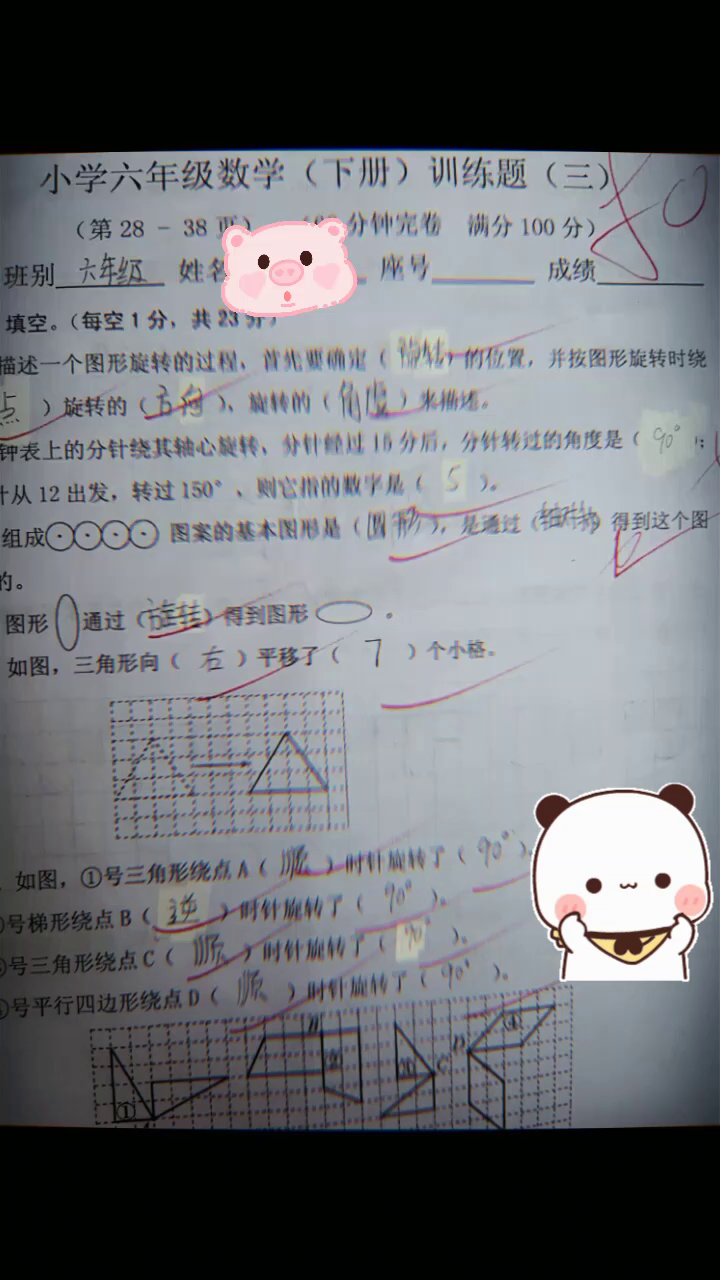 小学六年级数学（下册）训练题（三）
（第 28 － 38 页） 分钟完卷 满分 100 分）
班别 六年级 姓名 座号 成绩
填空。（每空 1 分，共 23 分）
描述一个图形旋转的过程，首先要确定（ 旋转 ）的位置，并按图形旋转时绕
点 ）旋转的（ 方向 ）、旋转的（ 角度 ）来描述。
钟表上的分针绕其轴心旋转，分针经过 15 分后，分针转过的角度是（ 90° ）；
针从 12 出发，转过 150°，则它指的数字是（ 5 ）。
组成 图案的基本图形是（ 圆形 ），是通过（ ）得到这个图
的。
图形 通过（ 旋转 ）得到图形 。
如图，三角形向（ 右 ）平移了（ 7 ）个小格。
如图，①号三角形绕点 A（ 顺 ）时针旋转了（ 90° ）。
号梯形绕点 B（ 逆 ）时针旋转了（ 90° ）。
号三角形绕点 C（ 顺 ）时针旋转了（ 90° ）。
号平行四边形绕点 D（ 顺 ）时针旋转了（ 90° ）。
B ④
D
② C
①